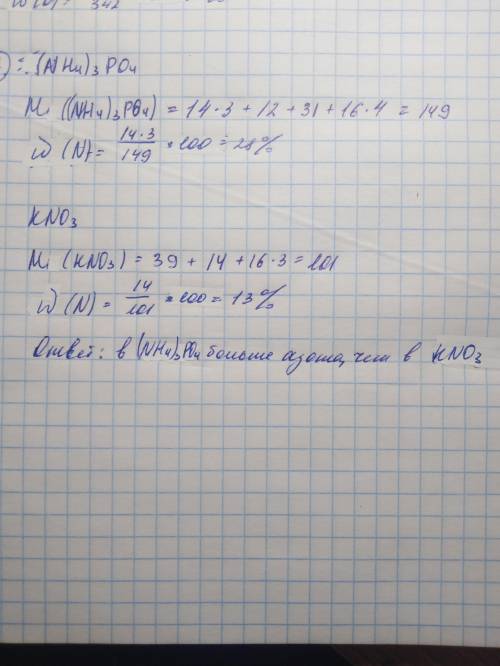 342
: (NH₄)₃PO₄
Mᵣ ((NH₄)₃PO₄) = 14·3 + 12 + 31 + 16·4 = 149
ω (N) = 14·3/149 · 100 = 28%
KNO₃
Mᵣ (KNO₃) = 39 + 14 + 16·3 = 101
ω (N) = 14/101 · 100 = 13%
Ответ: в (NH₄)₃PO₄ больше азота, чем в KNO₃